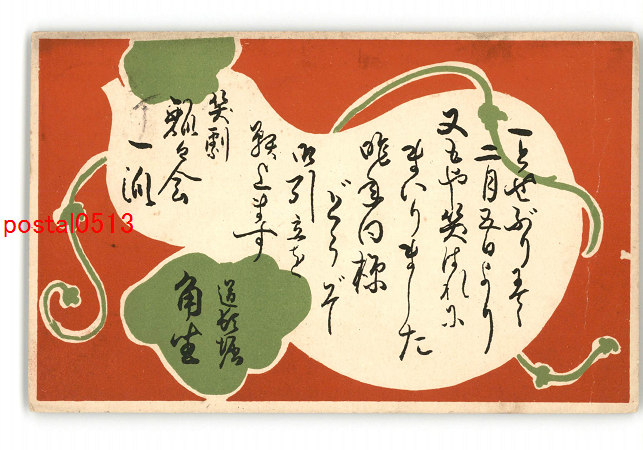 一とせぶりにて
二月五日より
又もや笑はれに
まいりました
昨年同様
どうぞ
御引立を
願上ます
笑劇
瓢々会
一派
道頓堀
角座
postal0513